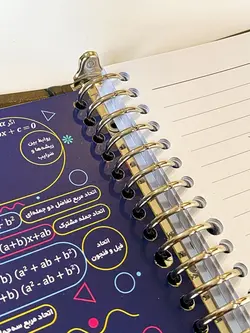 اگر
x + c = 0
روابط بین
ریشه‌ها و
ضرایب
اتحاد مربع تفاضل دو جمله‌ای
+ b²
اتحاد جمله مشترک
(a+b)x+ab
اتحاد
فیل و فنجون
b) (a² + ab + b²)
+b) (a² - ab + b²)
اتحاد مربع سه